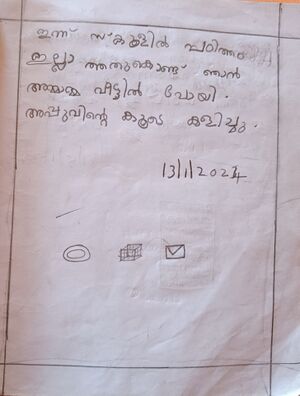 ഇന്ന് സ്കൂളിൽ പഠിത്തം
ഇല്ലാത്തതുകൊണ്ട് ഞാൻ
അമ്മമ്മ വീട്ടിൽ പോയി.
അപ്പുവിന്റെ കൂടെ കളിച്ചു.
13/1/2024